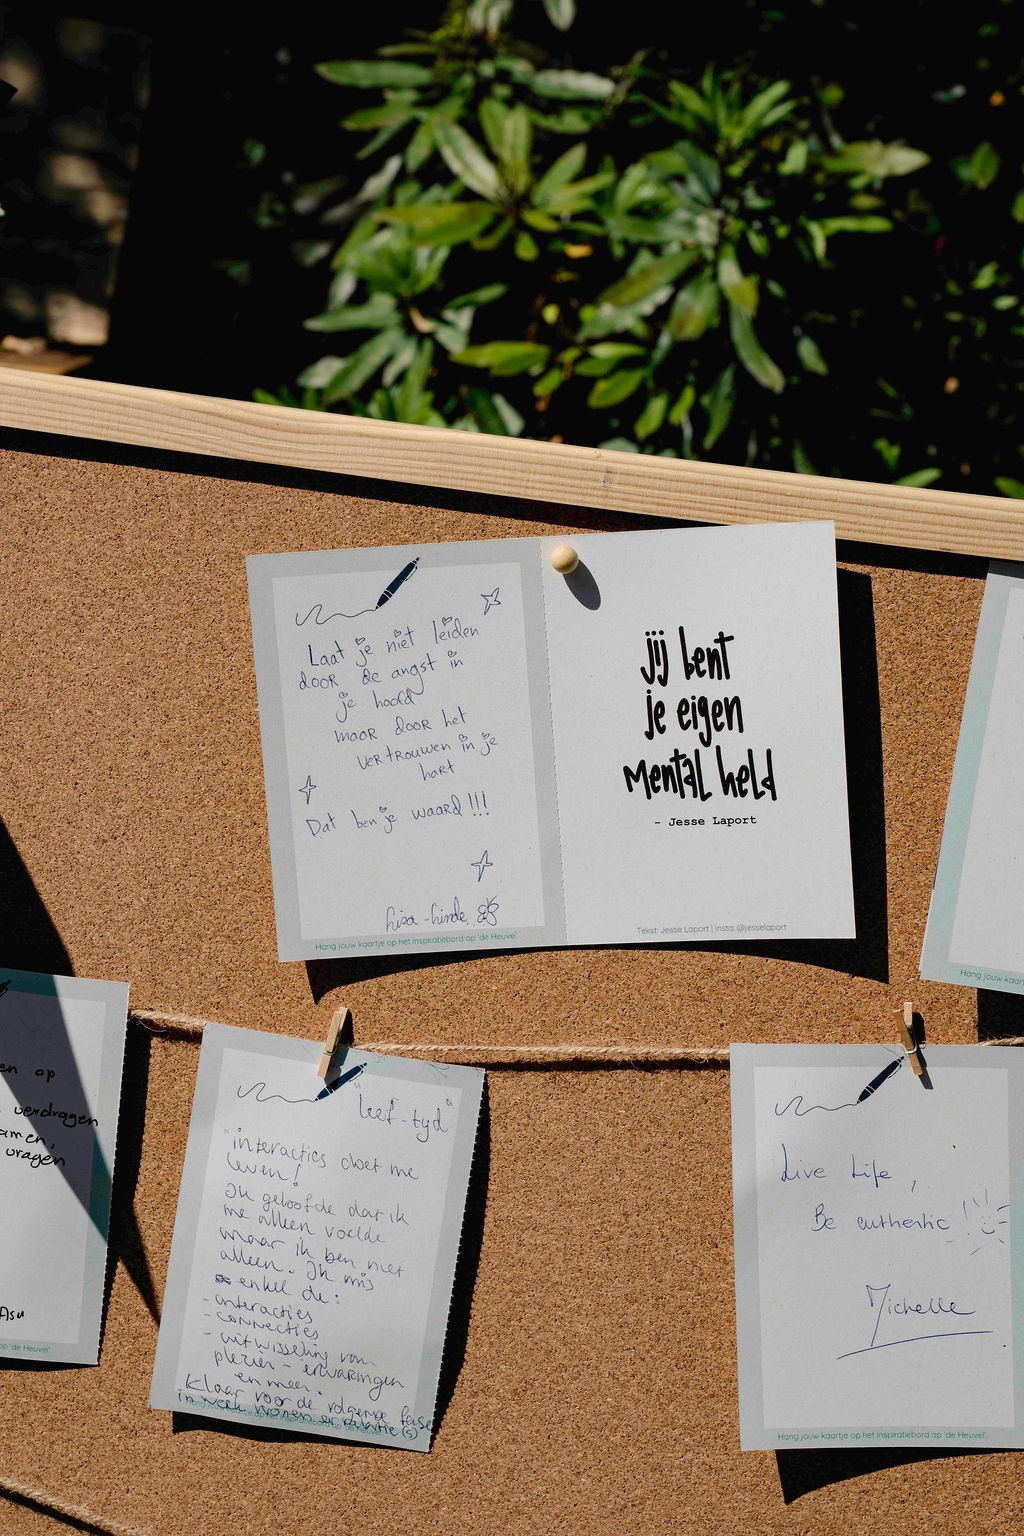 Laat je niet leiden
door de angst in
je hoofd
maar door het
vertrouwen in je
hart
Dat ben je waard!!!
Lisa-Linde
Hang jouw kaartje op het inspiratiebord op 'de Heuvel'.
jij bent
je eigen
mental held
- Jesse Laport
Tekst: Jesse Laport | Insta: @jesselaport
Hang jouw kaar
en op
verdragen
amen,
vragen
Asu
op 'de Heuvel'.
"leef-tyd"
"interacties doet me
leven!
Ik geloofde dat ik
me alleen voelde
maar ik ben niet
alleen. Ik mis
enkel de:
- interacties
- connecties
- uitwisseling van
plezier - ervaringen
en meer.
Klaar voor de volgende fase
in werk wonen en relatie(s)
Live Life,
Be authentic
Michelle
Hang jouw kaartje op het inspiratiebord op 'de Heuvel'.